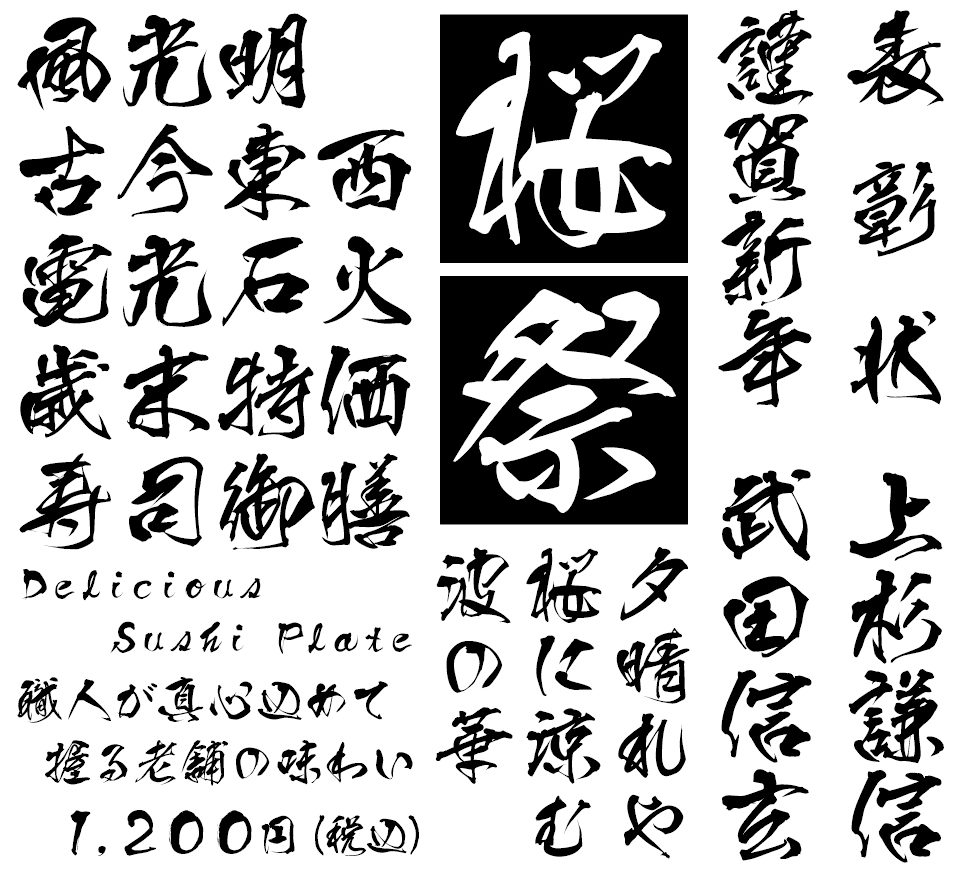 風光明
古今東西
電光石火
歳末特価
寿司御膳
Delicious
Sushi Plate
職人が真心込めて
握る老舗の味わい
1.200円(税込)
桜
祭
夕晴れや
桜に涼む
波の華
表彰状
謹賀新年
上杉謙信
武田信玄